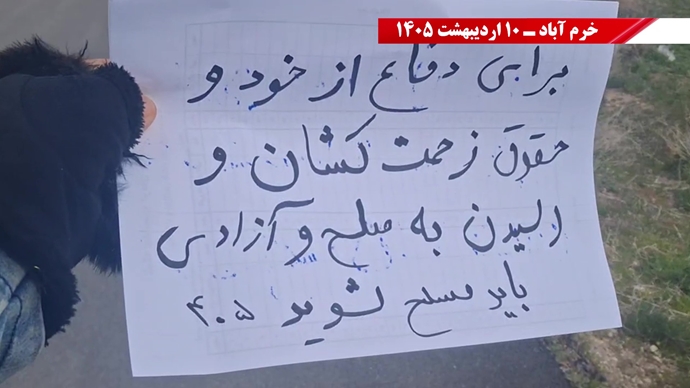 خرم آباد ــ ۱۰ اردیبهشت ۱۴۰۵
برای دفاع از خود و
حقوق زحمت کشان و
رسیدن به صلح و آزادی
باید مسلح شوید ۴۰۵